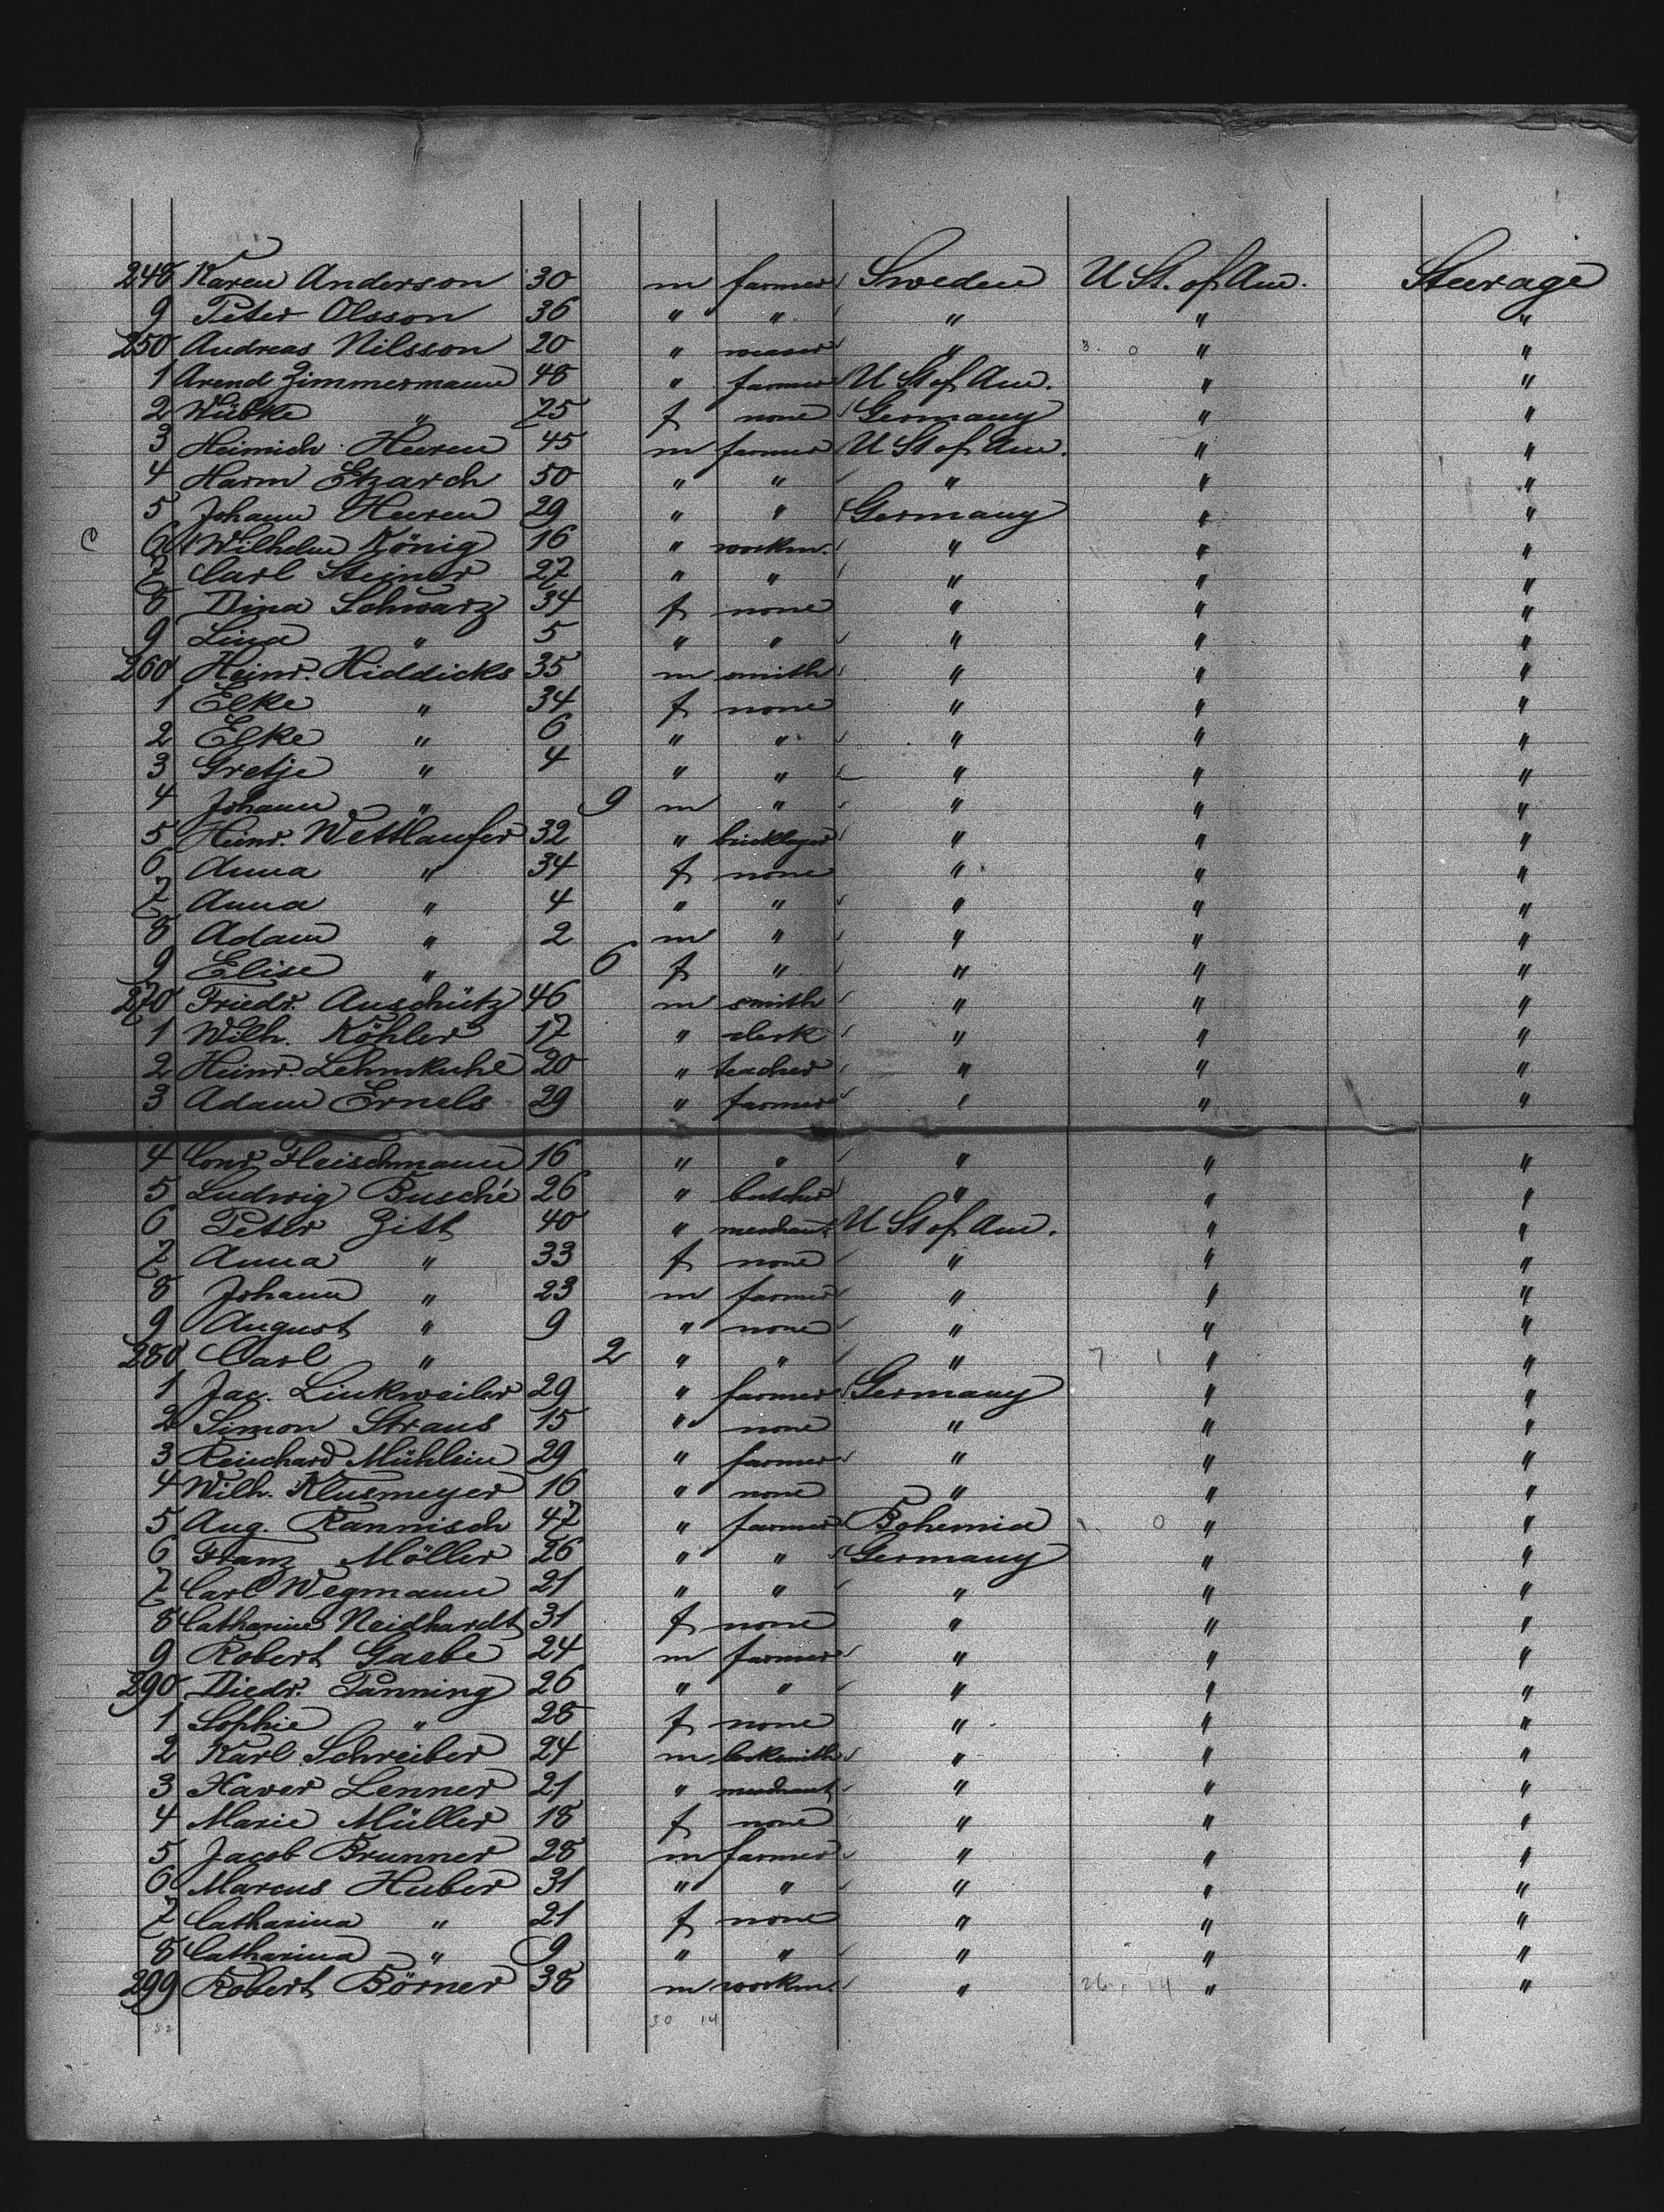 248 Karen Anderson 30 m farmer Sweden U St. of Am. Steerage
9 Peter Olsson 36 " " " " "
250 Andreas Nilsson 20 " weaver " 3. 0 " "
1 Arend Zimmermann 48 " farmer U St of Am. " "
2 Wübke " 25 f none Germany " "
3 Heinrich Heeren 45 m farmer U St of Am. " "
4 Harm Etzarch 50 " " " " "
5 Johann Heeren 29 " " Germany " "
6 Wilhelm König 16 " workm. " " "
7 Carl Steiner 27 " " " " "
8 Dina Schwarz 34 f none " " "
9 Lina " 5 " " " " "
260 Heinr. Hiddicks 35 m smith " " "
1 Elke " 34 f none " " "
2 Elke " 6 " " " " "
3 Gretje " 4 " " " " "
4 Johann " 9 m " " " "
5 Heinr. Wettlaufer 32 " bricklayer " " "
6 Anna " 34 f none " " "
7 Anna " 4 " " " " "
8 Adam " 2 m " " " "
9 Elise " 6 f " " " "
270 Friedr. Auschütz 46 m smith " " "
1 Wilh. Köhler 17 " clerk " " "
2 Heinr. Lehmkuhl 20 " teacher " " "
3 Adam Ernels 29 " farmer " " "
4 Conr. Fleischmann 16 " " " " "
5 Ludwig Busché 26 " butcher " " "
6 Peter Zitt 40 " merchant U St of Am. " "
7 Anna " 33 f none " " "
8 Johann " 23 m farmer " " "
9 August " 9 " none " " "
280 Carl " 2 " " " 7 1 " "
1 Jac. Linkweiler 29 " farmer Germany " "
2 Simon Straus 15 " none " " "
3 Reinhard Mühlein 29 " farmer " " "
4 Wilh. Klusmeyer 16 " none " " "
5 Aug. Rannisch 47 " farmer Bohemia 1. 0 " "
6 Franz Möller 26 " " Germany " "
7 Carl Wegmann 21 " " " " "
8 Catharine Neidhardt 31 f none " " "
9 Robert Gaebe 24 m farmer " " "
290 Diedr. Panning 26 " " " " "
1 Sophie " 28 f none " " "
2 Karl Schreiber 24 m locksmith " " "
3 Xaver Lenner 21 " merchant " " "
4 Marie Müller 18 f none " " "
5 Jacob Brunner 28 m farmer " " "
6 Marcus Huber 31 " " " " "
7 Catharina " 21 f none " " "
8 Catharina " 9 " " " " "
299 Robert Börner 38 m workm. " 26. 14 " "
52 30 14